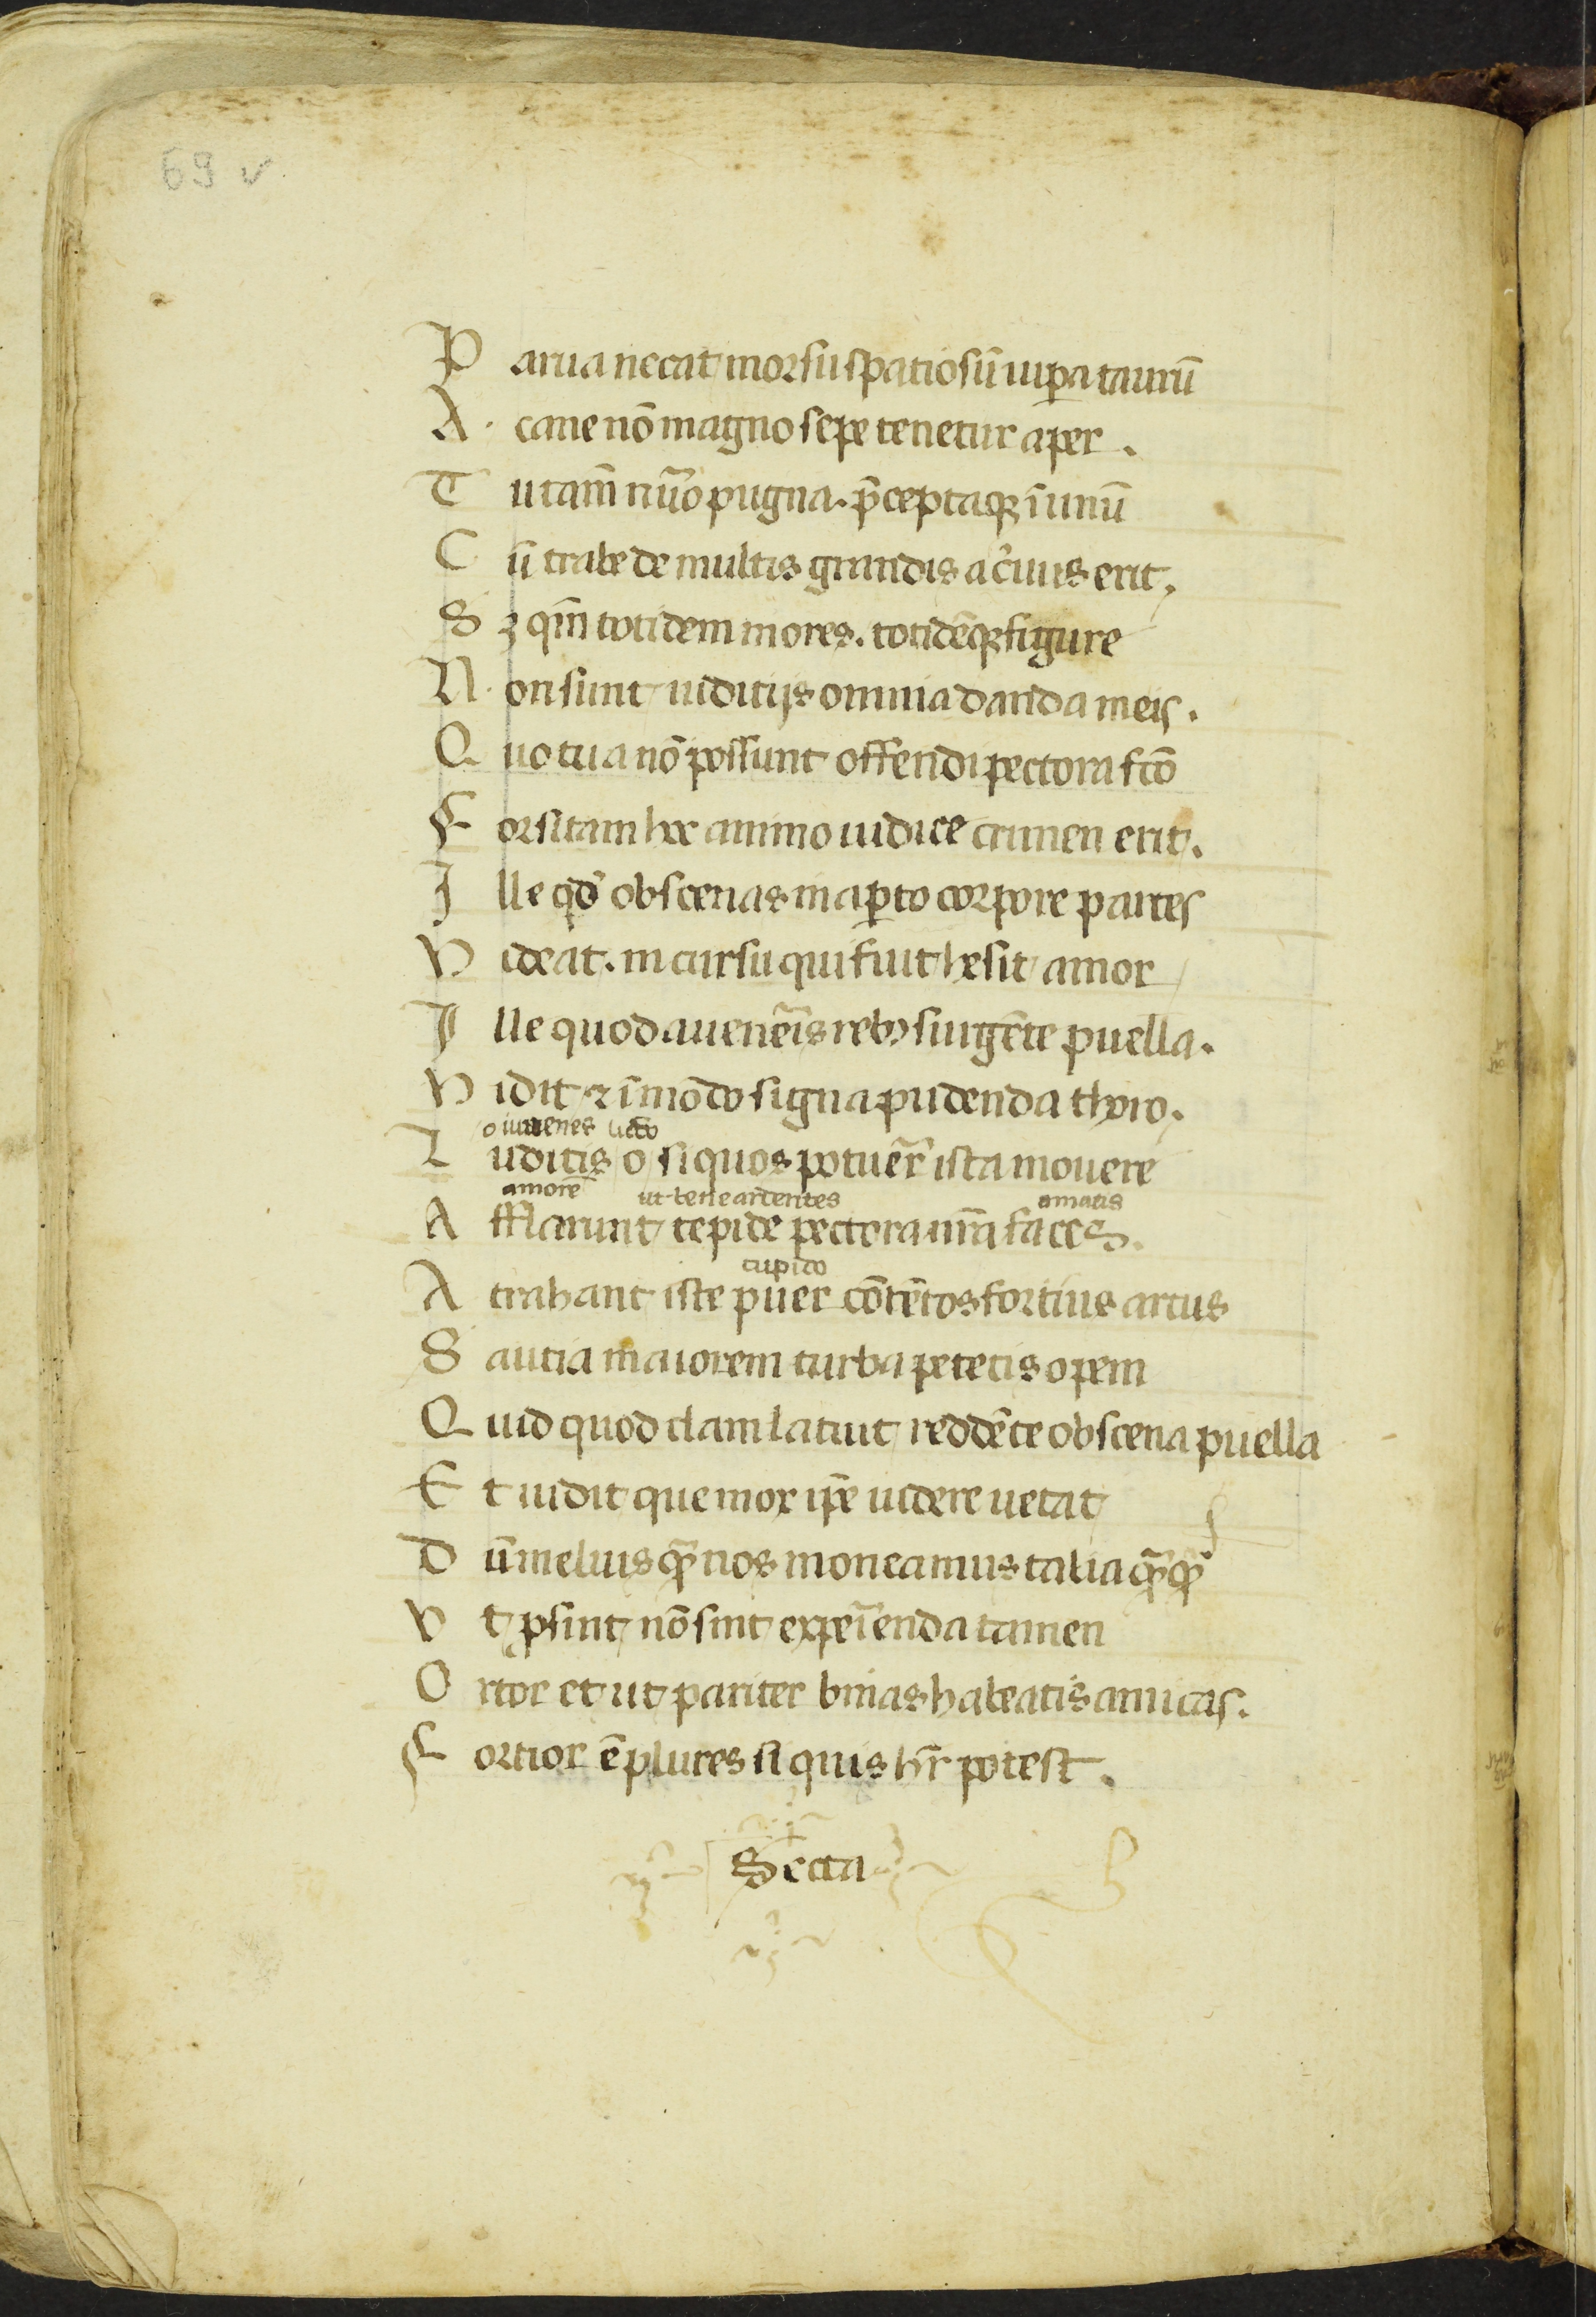 69 v
P arua necat morsu spatiosũ uip̱a taurũ
A. cane nõ magno sepe tenetur aper.
T u tam̃ nũo pugna. p̃ceptaqꝫ ĩ unũ
C ũ trahe de multis grandis ac̃uus erit.
S ꝫ qm̃ totidem mores. totidẽqꝫ figure
N. on sunt iuditijs omnia danda meis.
Q uo tua nõ possunt offendi pectora fc̃o
F orsitam hoc animo iudice crimen erit.
I lle qd̃ obscenas in ap̱to corpore partes
V iderat. in cursu qui fuit hesit amor
I lle quod a uenẽis rebꝫ surgẽte puella.
V idit ⁊ ĩmõdo signa pudenda thoro.
o iuuenes uicto
L uditis o siquos potuer̃ ista mouere
amorẽ ut tene ardentes amatis
A fflarunt tepide pectora ur̃a faces.
cupido
A trahant iste puer cõtẽtos fortius arcus
S autia maiorem turba petetis opem
Q uid quod clam latuit reddẽte obscena puella
E t uidit que mox ip̃e uidere uetat
D ũ melius qꝫ̃ nos moneamus talia qꝫ̃qꝫ̃
V t ꝓsint nõ sint expeĩenda tamen
O rtor et ut pariter binas habeatis amicas.
F ortior ẽ plures si quis hr̃e potest.
Secta